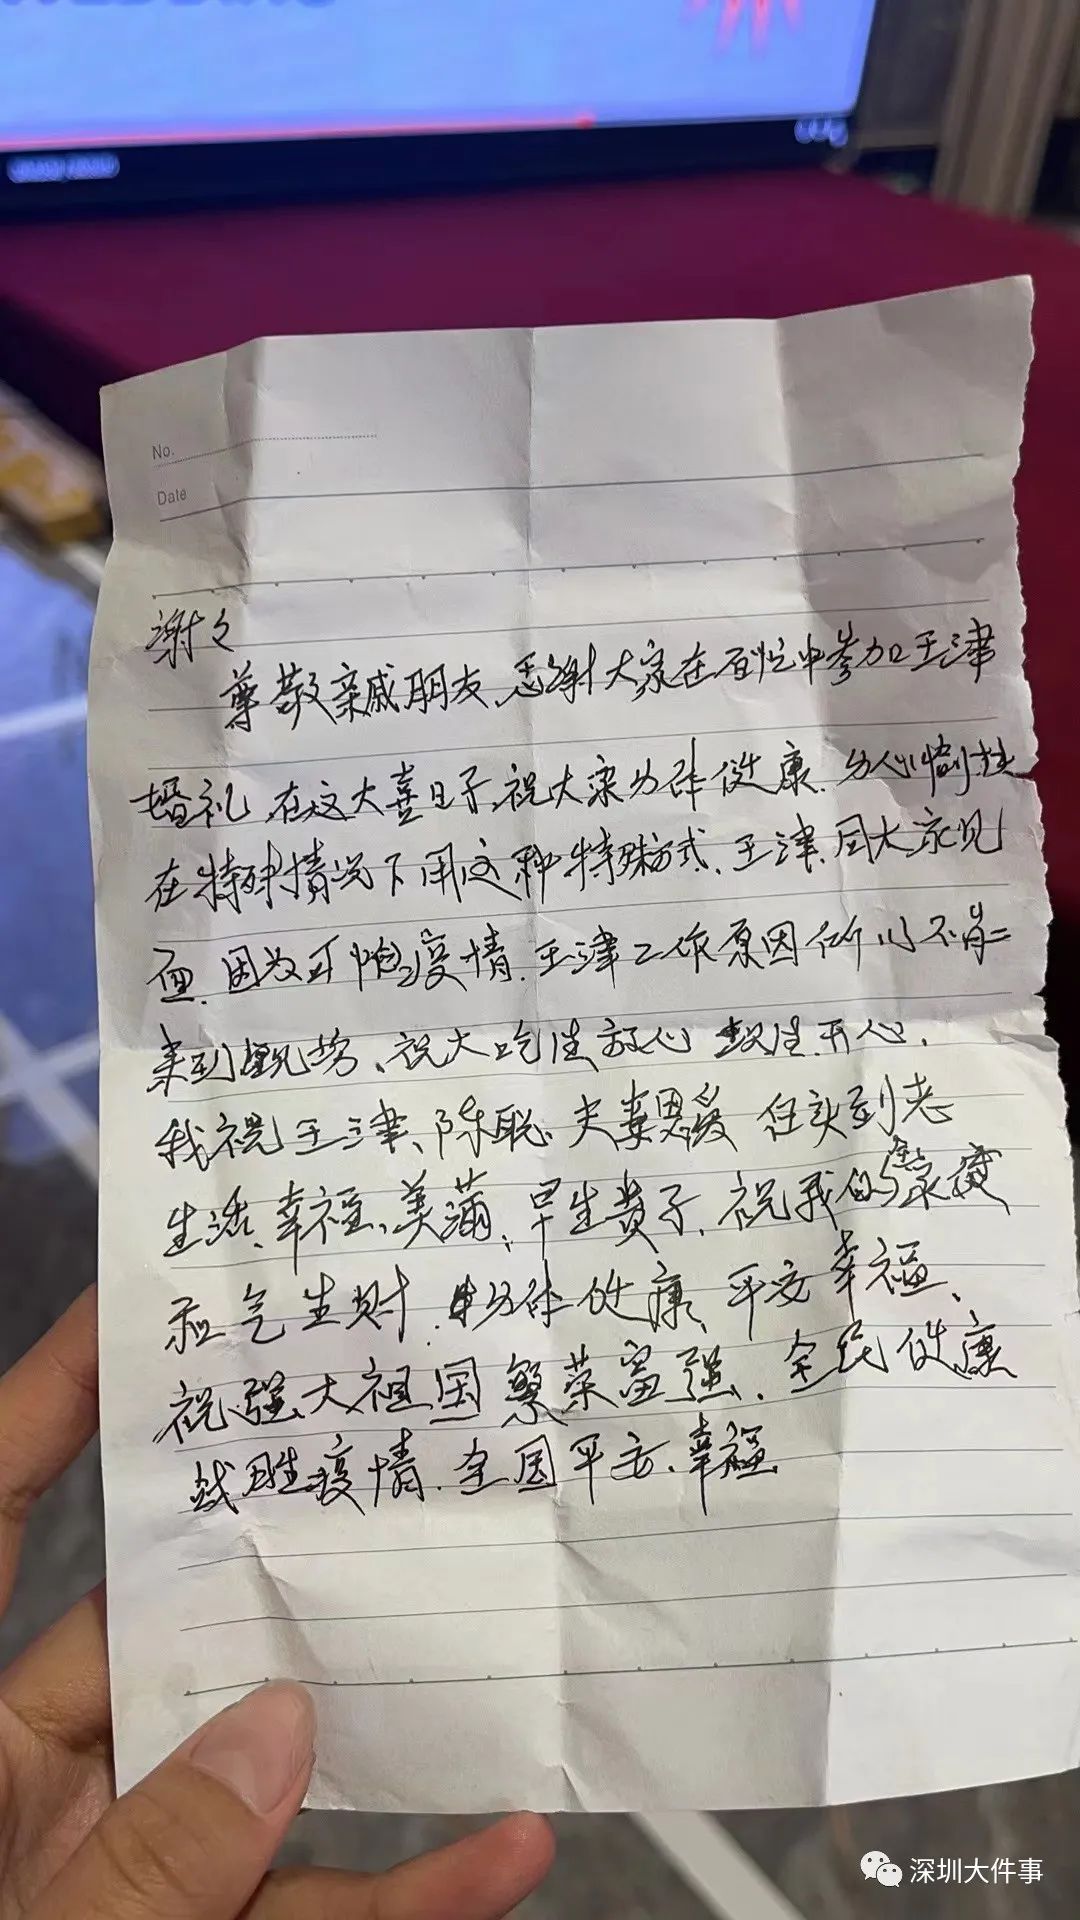 No.
Date
谢々
尊敬亲戚朋友、感谢大家在百忙中参加王津
婚礼、在这大喜日子、祝大家身体健康、身心愉快
在特殊情况下用这种特殊方式、王津、同大家见
面、因为可怕疫情、王津工作原因所以不能
来到现场、祝大吃住放心 玩住开心、
我祝王津、陈聪、夫妻恩爱 白头到老
生活、幸福、美满、早生贵子、祝我的亲
和气生财、身体健康、平安幸福、
祝强大祖国繁荣富强、全民健康
战胜疫情、全国平安、幸福
深圳大件事